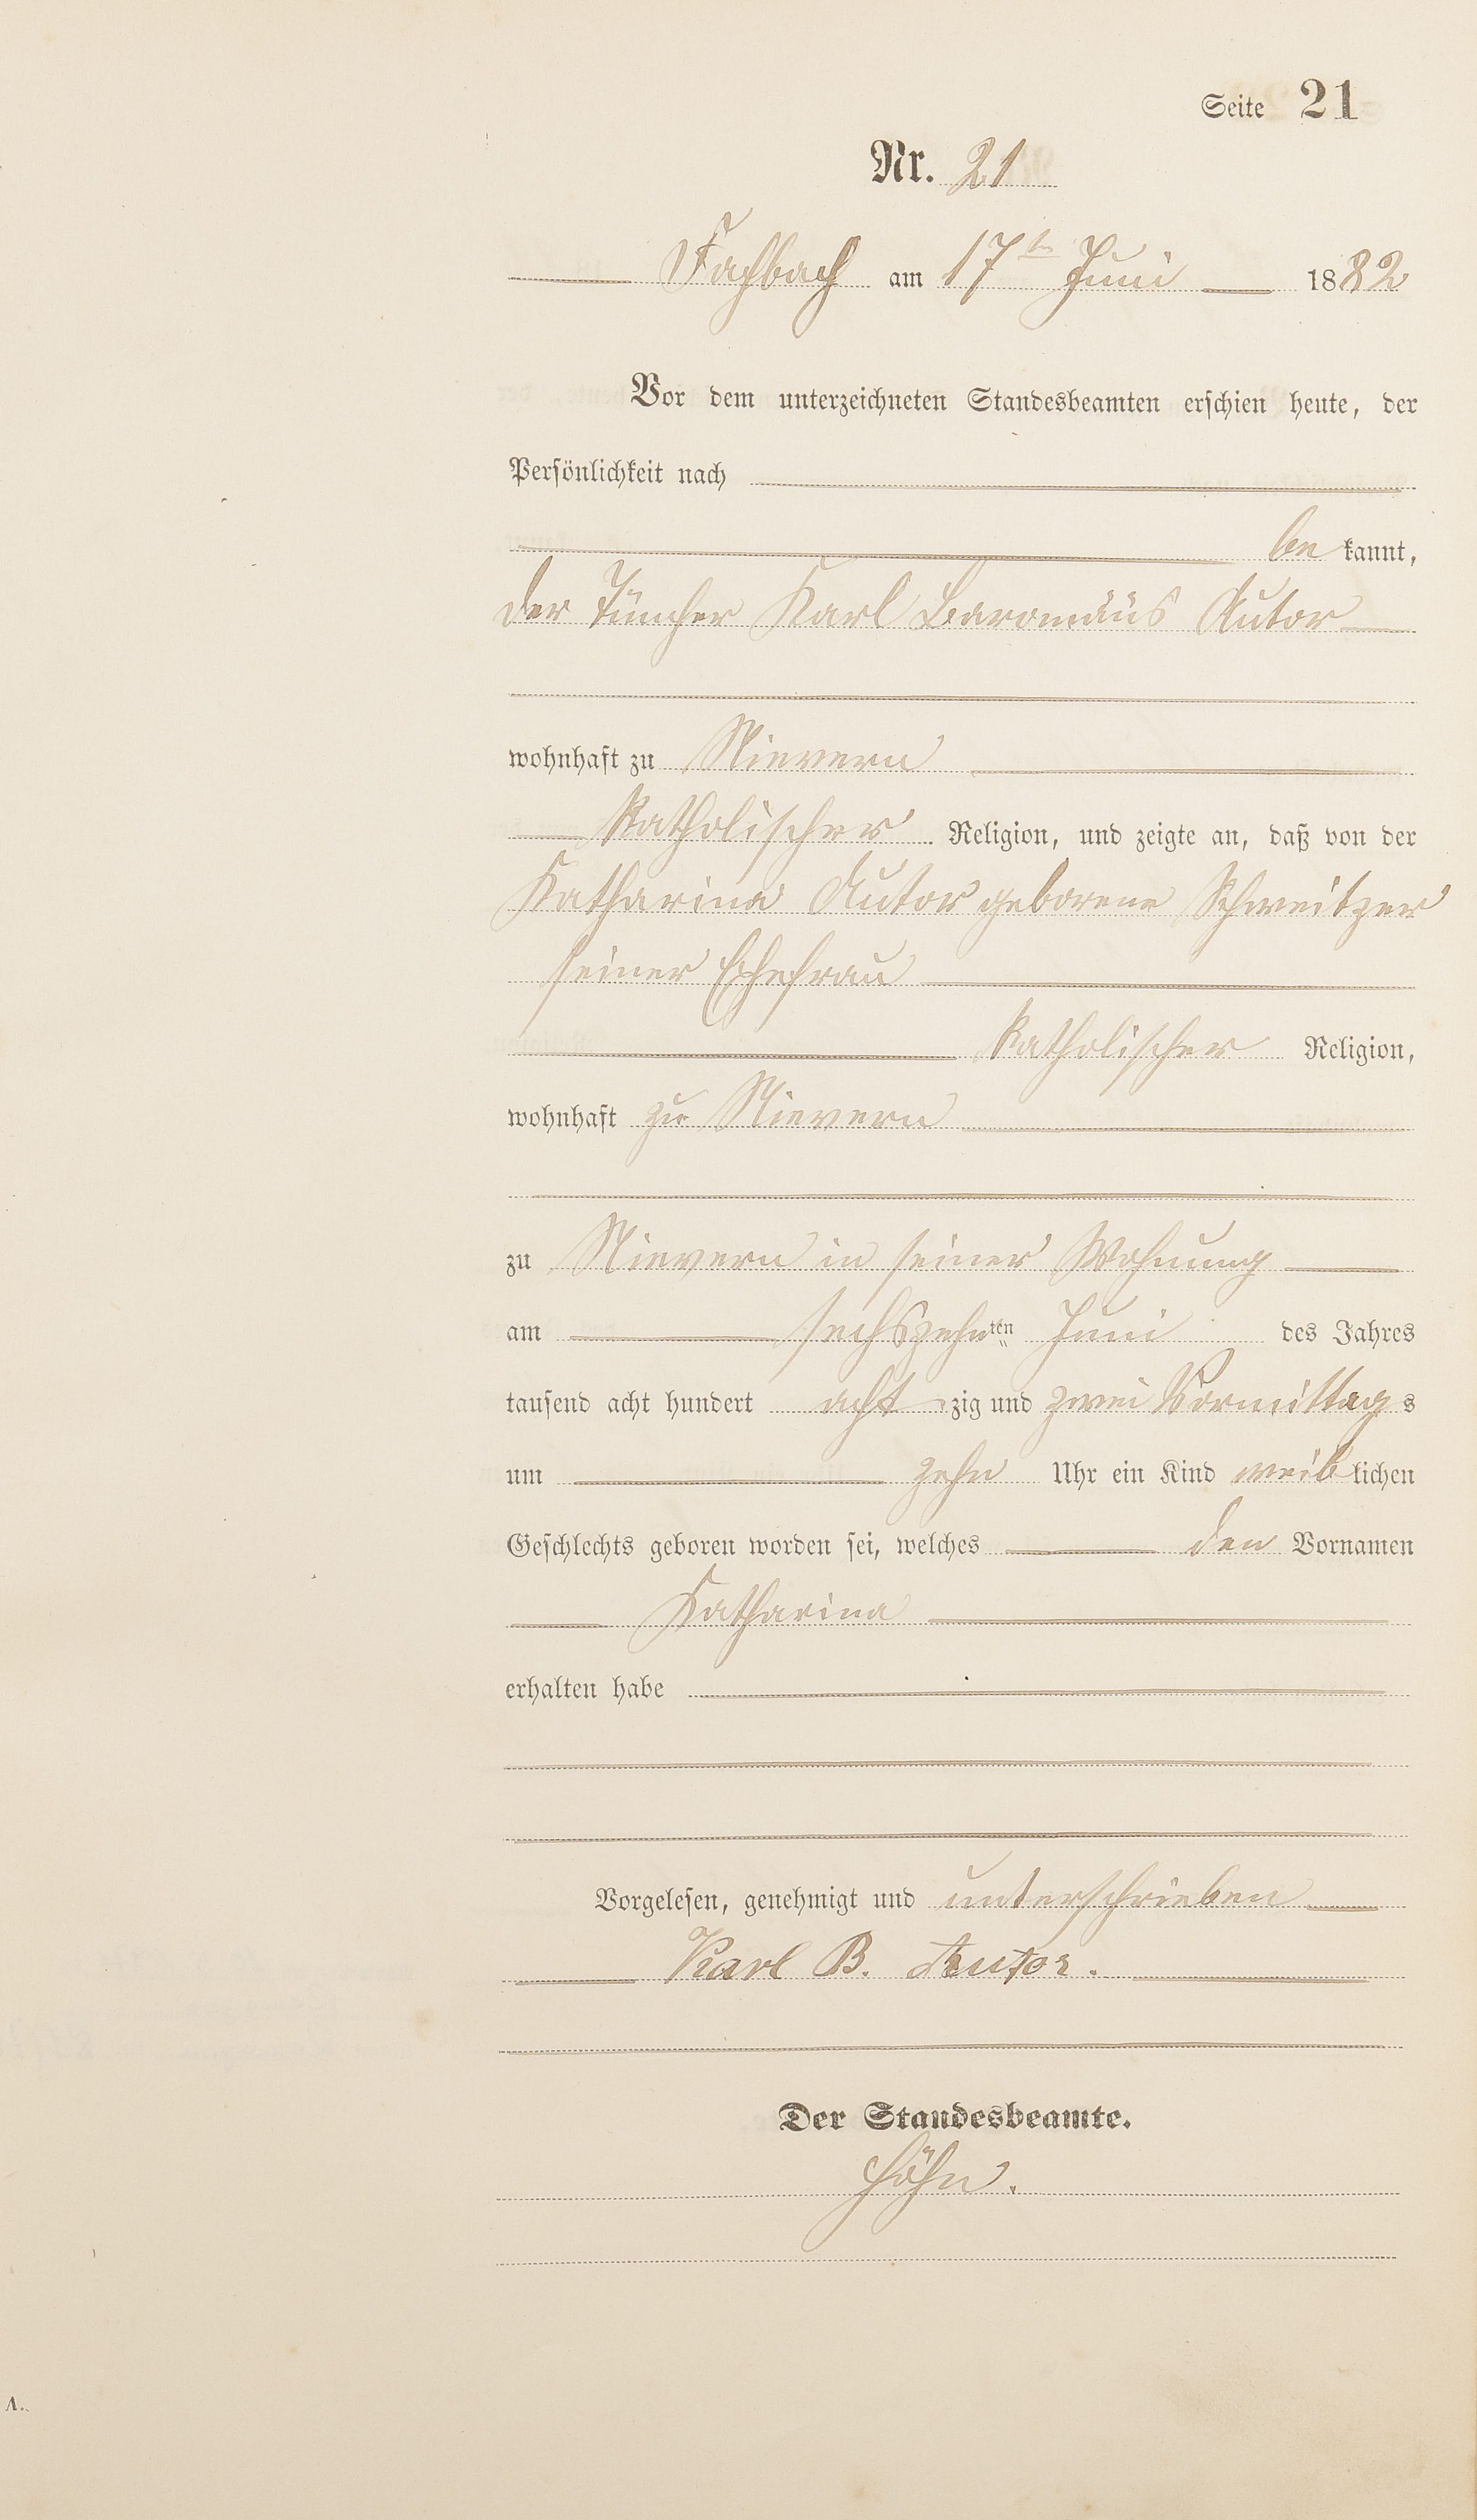 Seite 21
Nr. 21
Fachbach am 17ten Juni 1882
Vor dem unterzeichneten Standesbeamten erschien heute, der
Persönlichkeit nach
be kannt,
der Tüncher Karl Baromäus Autor
wohnhaft zu Nievern
katholischer Religion, und zeigte an, daß von der
Katharina Autor geborene Schweitzer
seiner Ehefrau
katholischer Religion,
wohnhaft zu Nievern
zu Nievern in seiner Wohnung
am sechszehnten Juni des Jahres
tausend acht hundert acht zig und zwei Vormittag s
um zehn Uhr ein Kind weib lichen
Geschlechts geboren worden sei, welches den Vornamen
Katharina
erhalten habe
Vorgelesen, genehmigt und unterschrieben
Karl B. Autor.
Der Standesbeamte.
Höhn.
A.